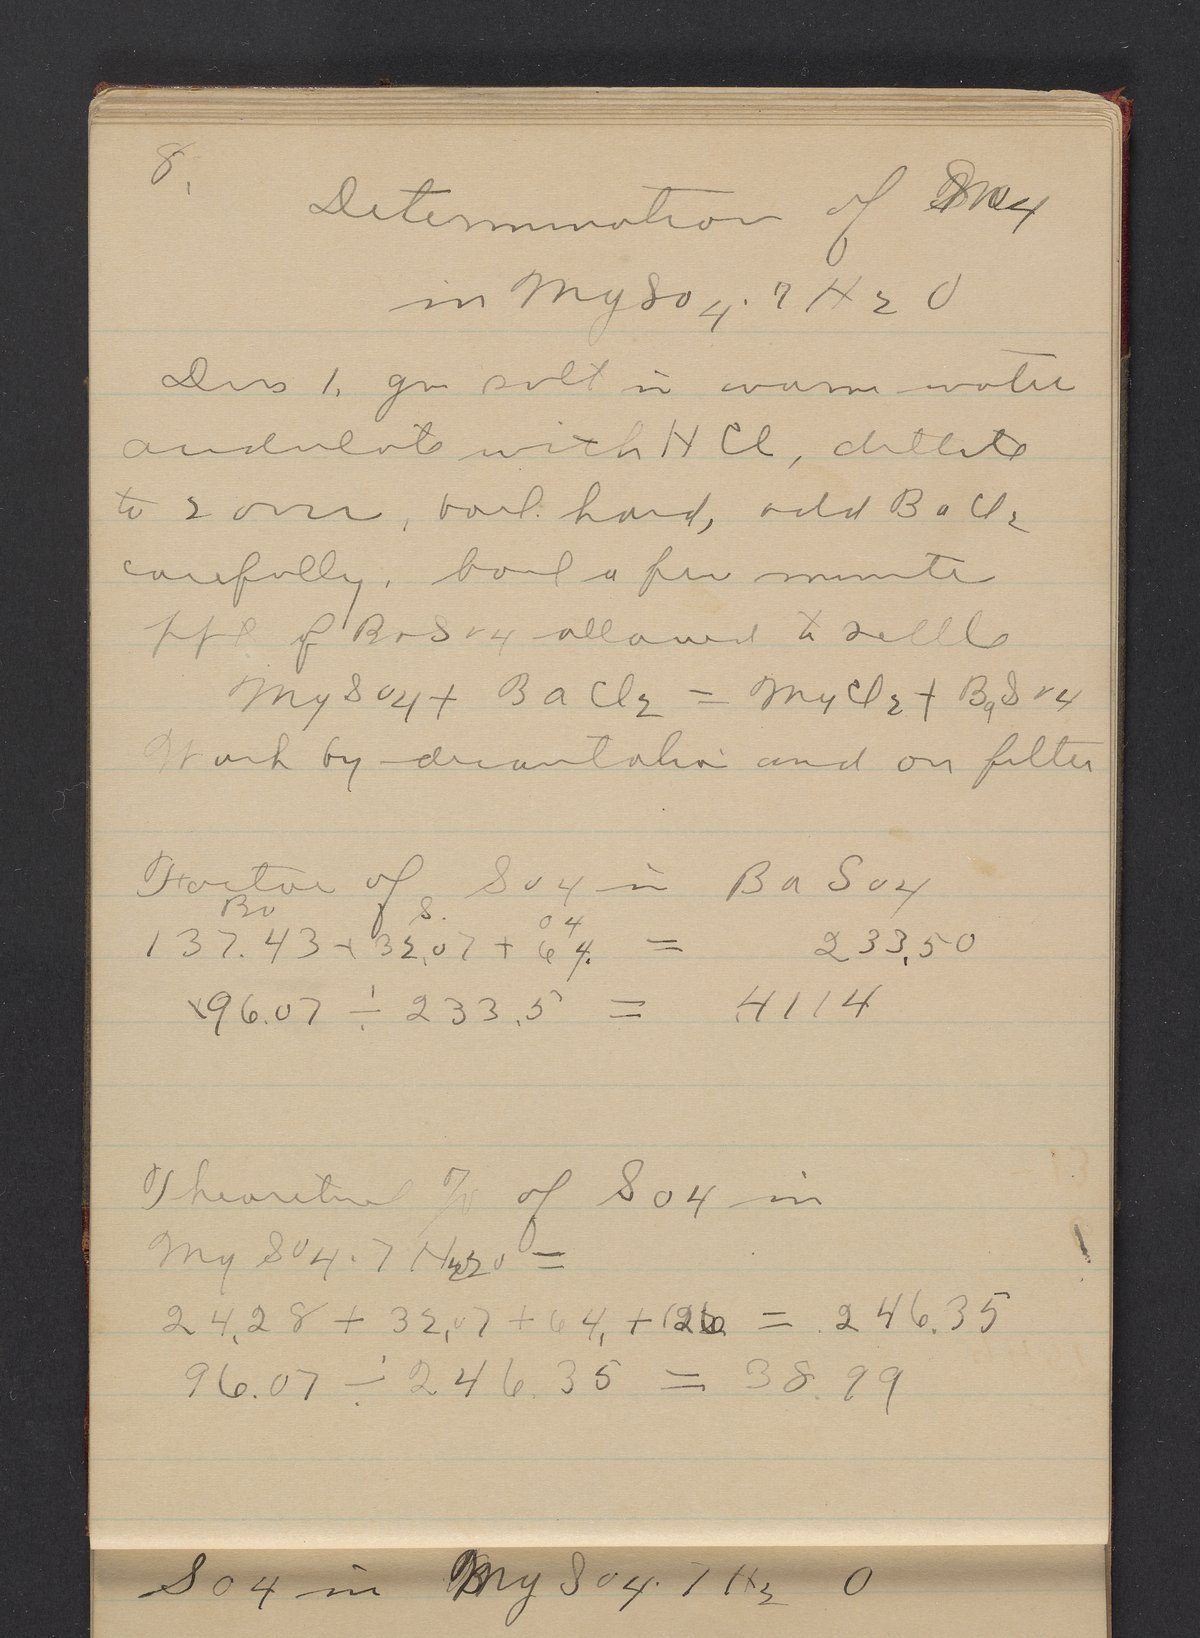 8.
Determination of SO4
in MgSO4.7H2O
Diss 1. gm salt in warm water
acidulate with HCl, dillute
to 200cc, boil hard, add BaCl2
carefully. boil a few minute
ppt of BaSO4 allowed to settle
MgSO4 + BaCl2 = MgCl2 + BaSO4
Wash by decantation and on filter
Factor of SO4 in BaSO4
Ba S. O4
137.43 + 32.07 + 64. = 233.50
96.07 ÷ 233.5 = .4114
Theoretical % of SO4 in
MgSO4.7H2O =
24.28 + 32.07 + 64. + 126. = 246.35
96.07 ÷ 246.35 = 38.99
SO4 in MgSO4.7H2O